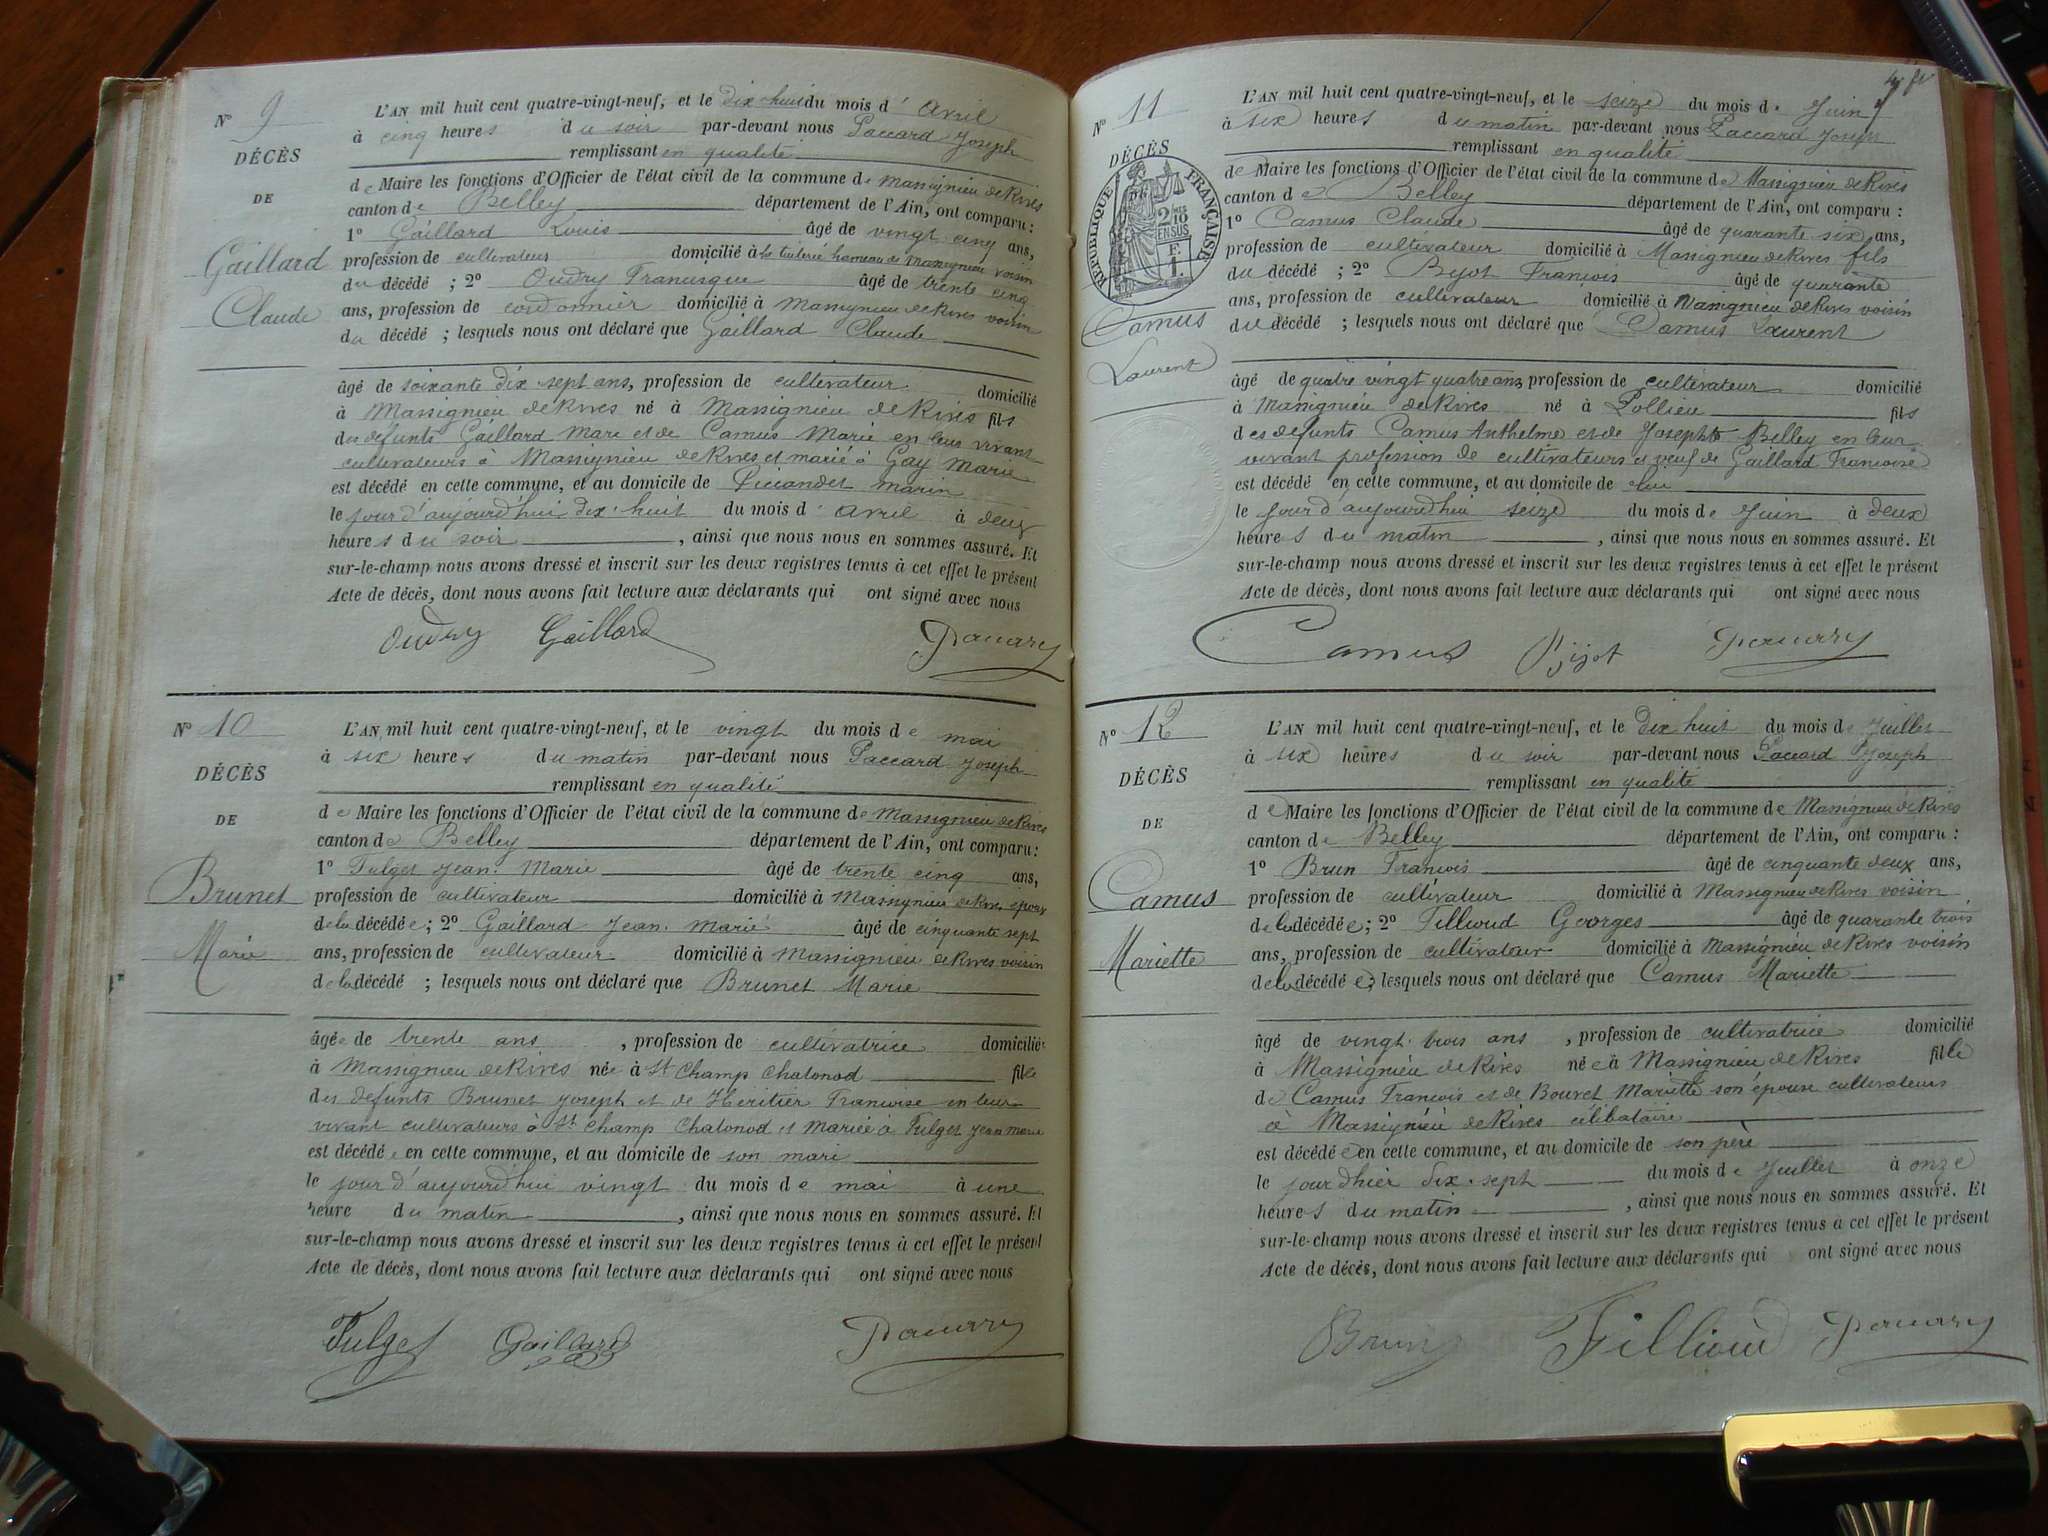 N° 9
DÉCÈS
DE
Gaillard
Claude
L'AN mil huit cent quatre-vingt-neuf, et le dix huit du mois d' avril
à cinq heures du soir par-devant nous Paccard Joseph
remplissant en qualité
de Maire les fonctions d'Officier de l'état civil de la commune de Massignieu de Rives
canton de Belley département de l'Ain, ont comparu :
1° Gaillard Louis âgé de vingt cinq ans,
profession de cultivateur domicilié à hameau de Massignieu voisin
du décédé ; 2° Oudry Francisque âgé de trente cinq
ans, profession de cordonnier domicilié à Massignieu de Rives voisin
du décédé ; lesquels nous ont déclaré que Gaillard Claude
âgé de soixante dix sept ans, profession de cultivateur domicilié
à Massignieu de Rives né à Massignieu de Rives fils
des défunts Gaillard Marc et de Camus Marie en leur vivant
cultivateurs à Massignieu de Rives et marié à Gay Marie
est décédé en cette commune, et au domicile de marin
le jour d'aujourd'hui dix-huit du mois d' avril à deux
heures du soir , ainsi que nous nous en sommes assuré. Et
sur-le-champ nous avons dressé et inscrit sur les deux registres tenus à cet effet le présent
Acte de décès, dont nous avons fait lecture aux déclarants qui ont signé avec nous
Oudry Gaillard Paccard
N° 10
DÉCÈS
DE
Brunet
Marie
L'AN mil huit cent quatre-vingt-neuf, et le vingt du mois de mai
à six heures du matin par-devant nous Paccard Joseph
remplissant en qualité
de Maire les fonctions d'Officier de l'état civil de la commune de Massignieu de Rives
canton de Belley département de l'Ain, ont comparu :
1° Fulget Jean Marie âgé de trente cinq ans,
profession de cultivateur domicilié à Massignieu de Rives époux
de la décédée ; 2° Gaillard Jean Marie âgé de cinquante sept
ans, profession de cultivateur domicilié à Massignieu de Rives voisin
de la décédé ; lesquels nous ont déclaré que Brunet Marie
âgée de trente ans , profession de cultivatrice domiciliée
à Massignieu de Rives née à St Champ Chatonod fille
des défunts Brunet Joseph et de Héritier Francoise en leur
vivant cultivateurs à St Champ Chatonod et mariée à Fulget Jean Marie
est décédée en cette commune, et au domicile de son mari
le jour d'aujourd'hui vingt du mois de mai à une
heure du matin , ainsi que nous nous en sommes assuré. Et
sur-le-champ nous avons dressé et inscrit sur les deux registres tenus à cet effet le présent
Acte de décès, dont nous avons fait lecture aux déclarants qui ont signé avec nous
Fulget Gaillard Paccard
N° 11
DÉCÈS
DE
RÉPUBLIQUE FRANÇAISE
2 10MES
EN SUS
E.
1.
Camus
Laurent
L'AN mil huit cent quatre-vingt-neuf, et le seize du mois de Juin
à six heures du matin par-devant nous Paccard Joseph
remplissant en qualité
de Maire les fonctions d'Officier de l'état civil de la commune de Massignieu de Rives
canton de Belley département de l'Ain, ont comparu :
1° Camus Claude âgé de quarante six ans,
profession de cultivateur domicilié à Massignieu de Rives fils
du décédé ; 2° François âgé de quarante
ans, profession de cultivateur domicilié à Massignieu de Rives voisin
du décédé ; lesquels nous ont déclaré que Camus Laurent
âgé de quatre vingt quatre ans, profession de cultivateur domicilié
à Massignieu de Rives né à Pollieu fils
des défunts Camus Anthelme et de Josephte Belley en leur
vivant profession de cultivateurs et veuf de Gaillard Francoise
est décédé en cette commune, et au domicile de
le jour d'aujourdhui seize du mois de Juin à deux
heures du matin , ainsi que nous nous en sommes assuré. Et
sur-le-champ nous avons dressé et inscrit sur les deux registres tenus à cet effet le présent
Acte de décès, dont nous avons fait lecture aux déclarants qui ont signé avec nous
Camus Paccard
N° 12
DÉCÈS
DE
Camus
Mariette
L'AN mil huit cent quatre-vingt-neuf, et le dix huit du mois de Juillet
à six heures du soir par-devant nous Paccard Joseph
remplissant en qualité
de Maire les fonctions d'Officier de l'état civil de la commune de Massignieu de Rives
canton de Belley département de l'Ain, ont comparu :
1° Brun Francois âgé de cinquante deux ans,
profession de cultivateur domicilié à Massignieu de Rives voisin
de la décédée ; 2° Fillioud Georges âgé de quarante trois
ans, profession de cultivateur domicilié à Massignieu de Rives voisin
de la décédée ; lesquels nous ont déclaré que Camus Mariette
âgé de vingt trois ans , profession de cultivatrice domicilié
à Massignieu de Rives née à Massignieu de Rives fille
de Camus Francois et de Bouvet Mariette son épouse cultivateurs
à Massignieu de Rives célibataire
est décédée en cette commune, et au domicile de son père
le jour d'hier dix-sept du mois de Juillet à onze
heures du matin , ainsi que nous nous en sommes assuré. Et
sur-le-champ nous avons dressé et inscrit sur les deux registres tenus à cet effet le présent
Acte de décès, dont nous avons fait lecture aux déclarants qui ont signé avec nous
Brun Fillioud Paccard